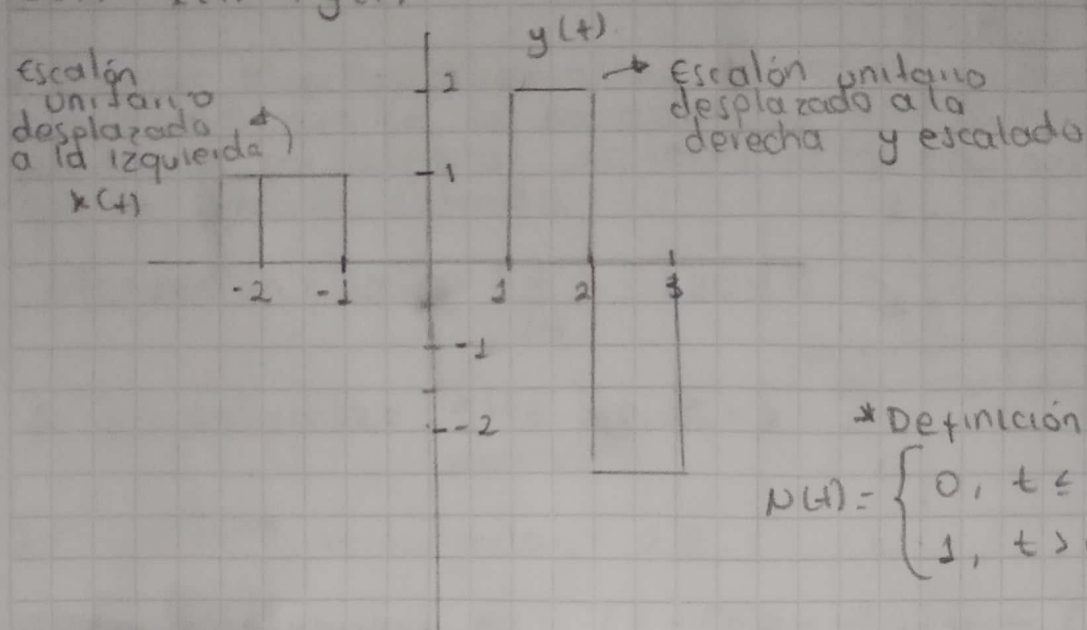 y(t)
Escalón
unitario
desplazado
a la izquierda
x(t)
→ Escalón unitario
desplazado a la
derecha y escalado
2
1
-2 -1 1 2 3
-1
-2
* Definición
N(t) = { 0, t ≤
1, t >